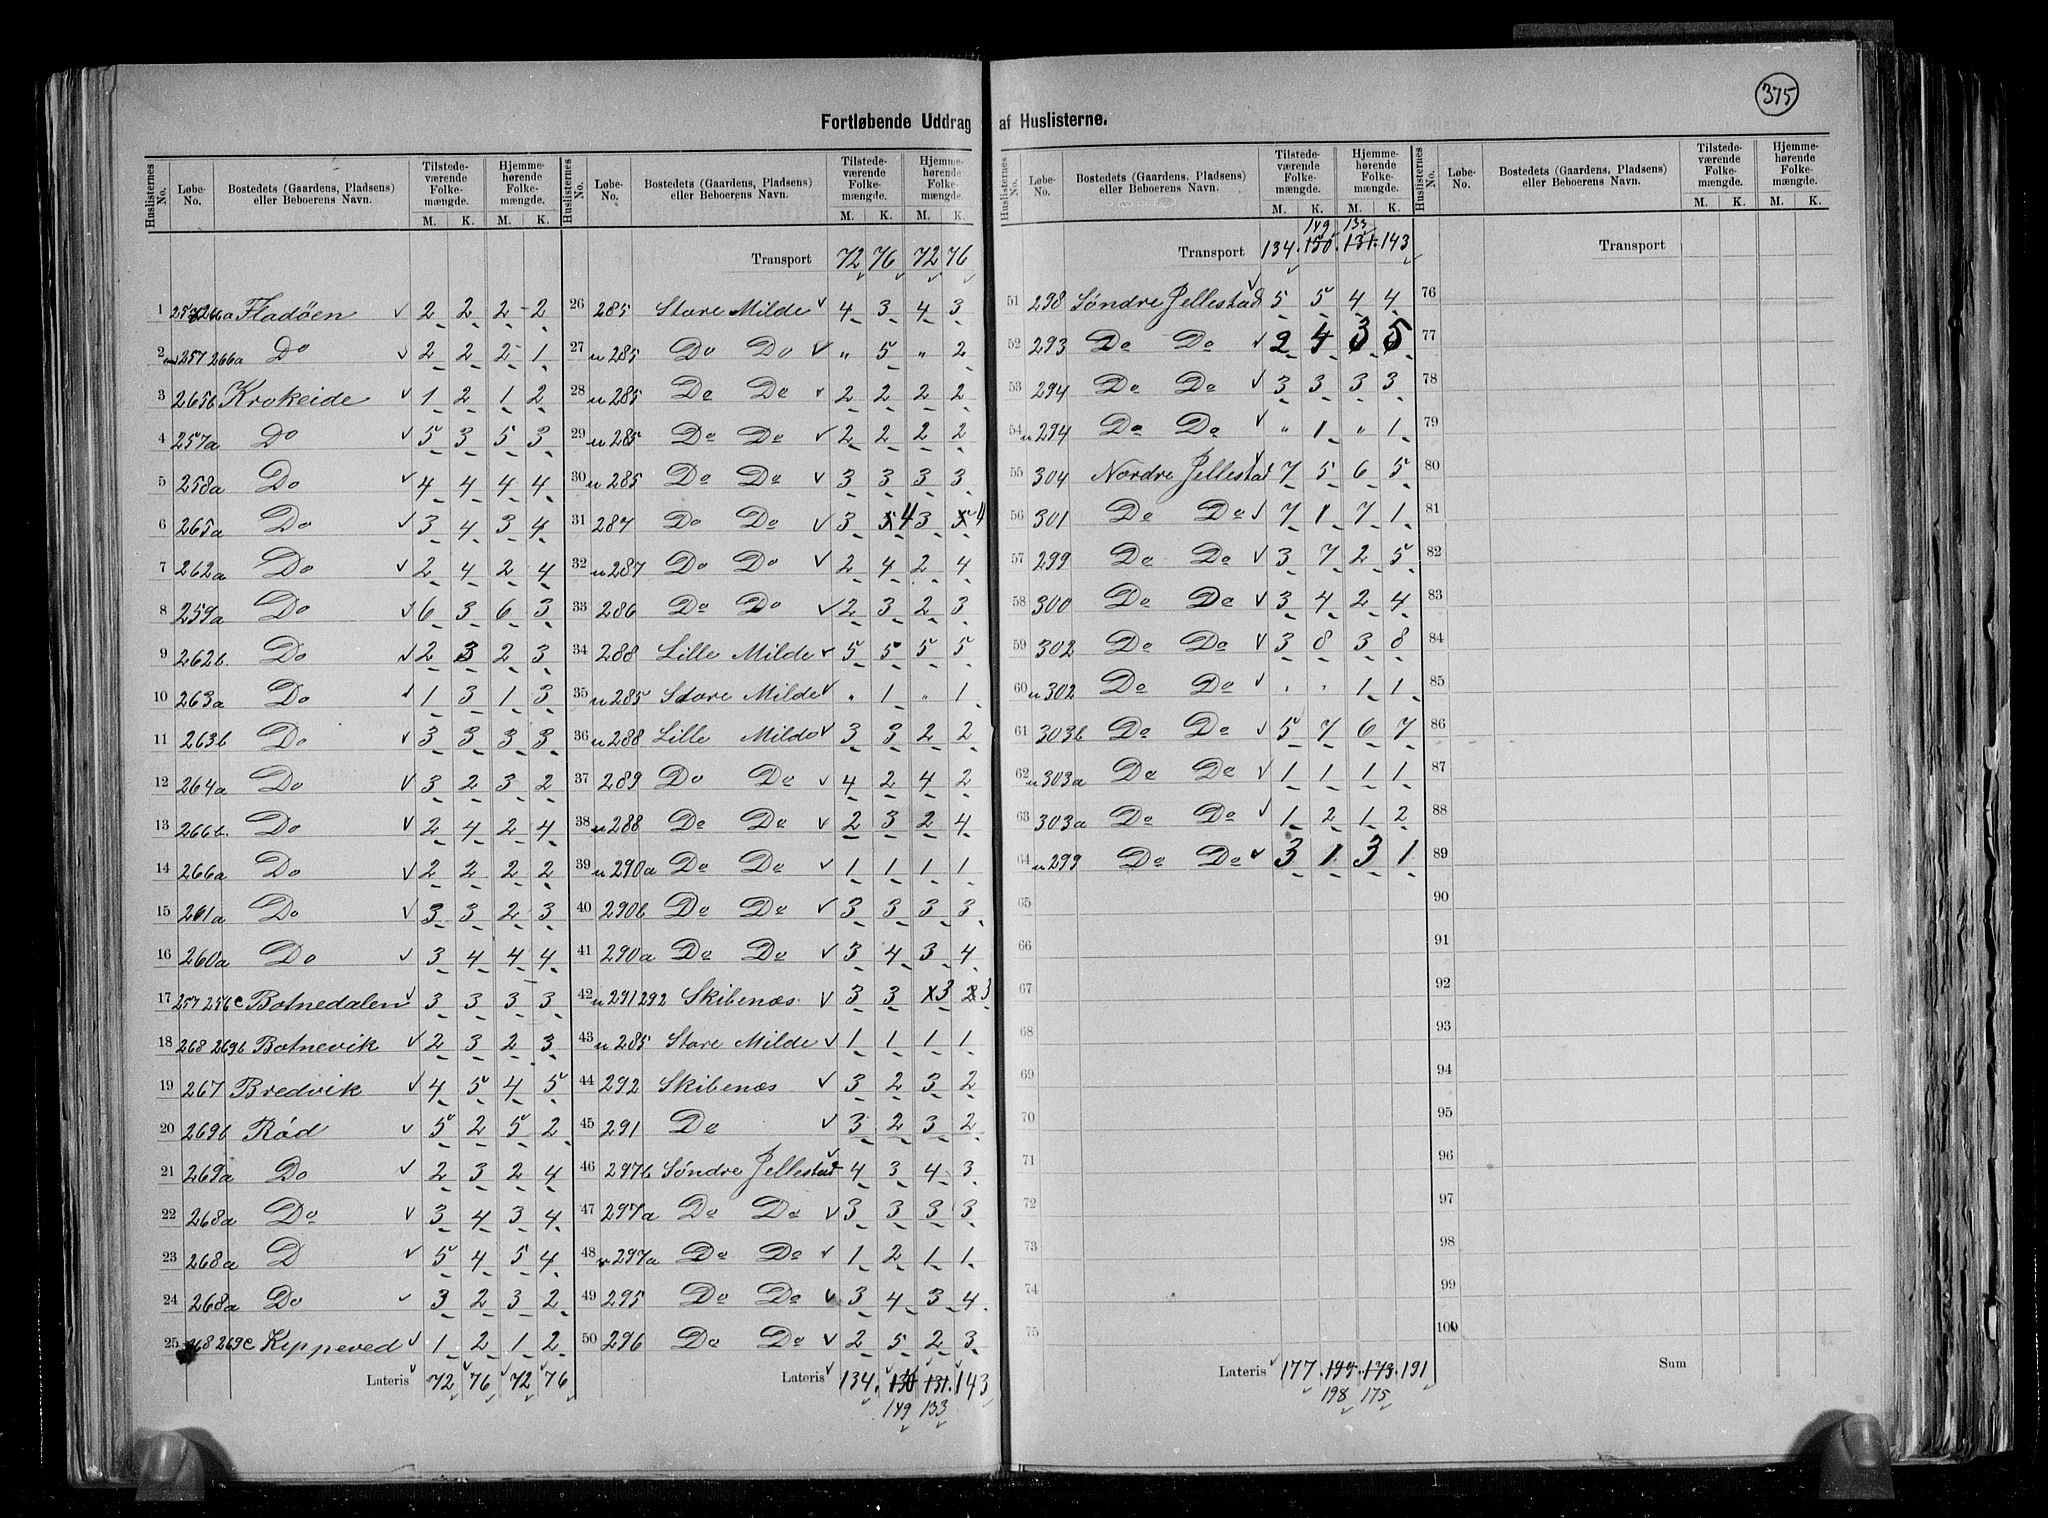 375
Fortløbende Uddrag af Huslisterne.
Huslisternes No. Løbe-No. Bostedets (Gaardens, Pladsens) eller Beboerens Navn. Tilstedeværende Folkemængde. M. K. Hjemmehørende Folkemængde. M. K.
1 266a Fladöen 2 2 2 2
2 257 266a Do 2 2 2 1
3 265b Krokeide 1 2 1 2
4 257a Do 5 3 5 3
5 258a Do 4 4 4 4
6 265a Do 3 4 3 4
7 262a Do 2 4 2 4
8 259a Do 6 3 6 3
9 262b. Do 2 3 2 3
10 263a Do 1 3 1 3
11 263b Do 3 3 3 3
12 264a Do 3 2 3 2
13 266b. Do 2 4 2 4
14 266a Do 2 2 2 2
15 261a Do 3 3 2 3
16 260a Do 3 4 4 4
17 257 256c Botnedalen 3 3 3 3
18 268 269b Botnevik 2 3 2 3
19 267 Bredvik 4 5 4 5
20 269b Röd 5 2 5 2
21 269a Do 2 3 2 4
22 268a Do 3 4 3 4
23 268a D 5 4 5 4
24 268a Do 3 2 3 2
25 268 269c Kippeved 1 2 1 2
Lateris 72 76 72 76
Huslisternes No. Løbe-No. Bostedets (Gaardens, Pladsens) eller Beboerens Navn. Tilstedeværende Folkemængde. M. K. Hjemmehørende Folkemængde. M. K.
Transport 72 76 72 76
26 285 Store Milde 4 3 4 3
27 u 285 Do Do " 5 " 2
28 u 285 Do Do 2 2 2 2
29 u 285 Do Do 2 2 2 2
30 u 285 Do Do 3 3 3 3
31 287 Do Do 3 5 4 3 5 4
32 u 287 Do Do 2 4 2 4
33 286 Do Do 2 3 2 3
34 288 Lille Milde 5 5 5 5
35 u 285 Store Milde " 1 " 1
36 u 288 Lille Milde 3 3 2 2
37 289 Do Do 4 2 4 2
38 u 288 Do Do 2 3 2 4
39 u 290a Do Do 1 1 1 1
40 290b Do Do 3 3 3 3
41 290a Do Do 3 4 3 4
42 u 291 292 Skibenæs 3 3 3 2 3
43 u 285 Store Milde 1 1 1 1
44 292 Skibenæs 3 2 3 2
45 291 Do 3 2 3 2
46 297b Søndre Jellestad 4 3 4 3
47 297a Do Do 3 3 3 3
48 u 297a Do Do 1 2 1 1
49 295 Do Do 3 4 3 4
50 296 Do Do 2 5 2 3
Lateris 134 150 131 143
149 133
Huslisternes No. Løbe-No. Bostedets (Gaardens, Pladsens) eller Beboerens Navn. Tilstedeværende Folkemængde. M. K. Hjemmehørende Folkemængde. M. K.
149 133
Transport 134 150 131 143
51 298 Søndre Jellestad 5 5 4 4
52 293 Do Do 2 4 3 5
53 294 Do Do 3 3 3 3
54 u 294 Do Do " 1 " 1
55 304 Nordre Jellestad 7 5 6 5
56 301 Do Do 7 1 7 1
57 299 Do Do 3 7 2 5
58 300 Do Do 3 4 2 4
59 302 Do Do 3 8 3 8
60 u 302 Do Do " " 1 1
61 303b Do Do 5 7 6 7
62 u 303a Do Do 1 1 1 1
63 303a Do Do 1 2 1 2
64 u 299 Do Do 3 1 3 1
65
66
67
68
69
70
71
72
73
74
75
Lateris 177 199 173 191
198 175
Huslisternes No. Løbe-No. Bostedets (Gaardens, Pladsens) eller Beboerens Navn. Tilstedeværende Folkemængde. M. K. Hjemmehørende Folkemængde. M. K.
Transport
76
77
78
79
80
81
82
83
84
85
86
87
88
89
90
91
92
93
94
95
96
97
98
99
100
Sum